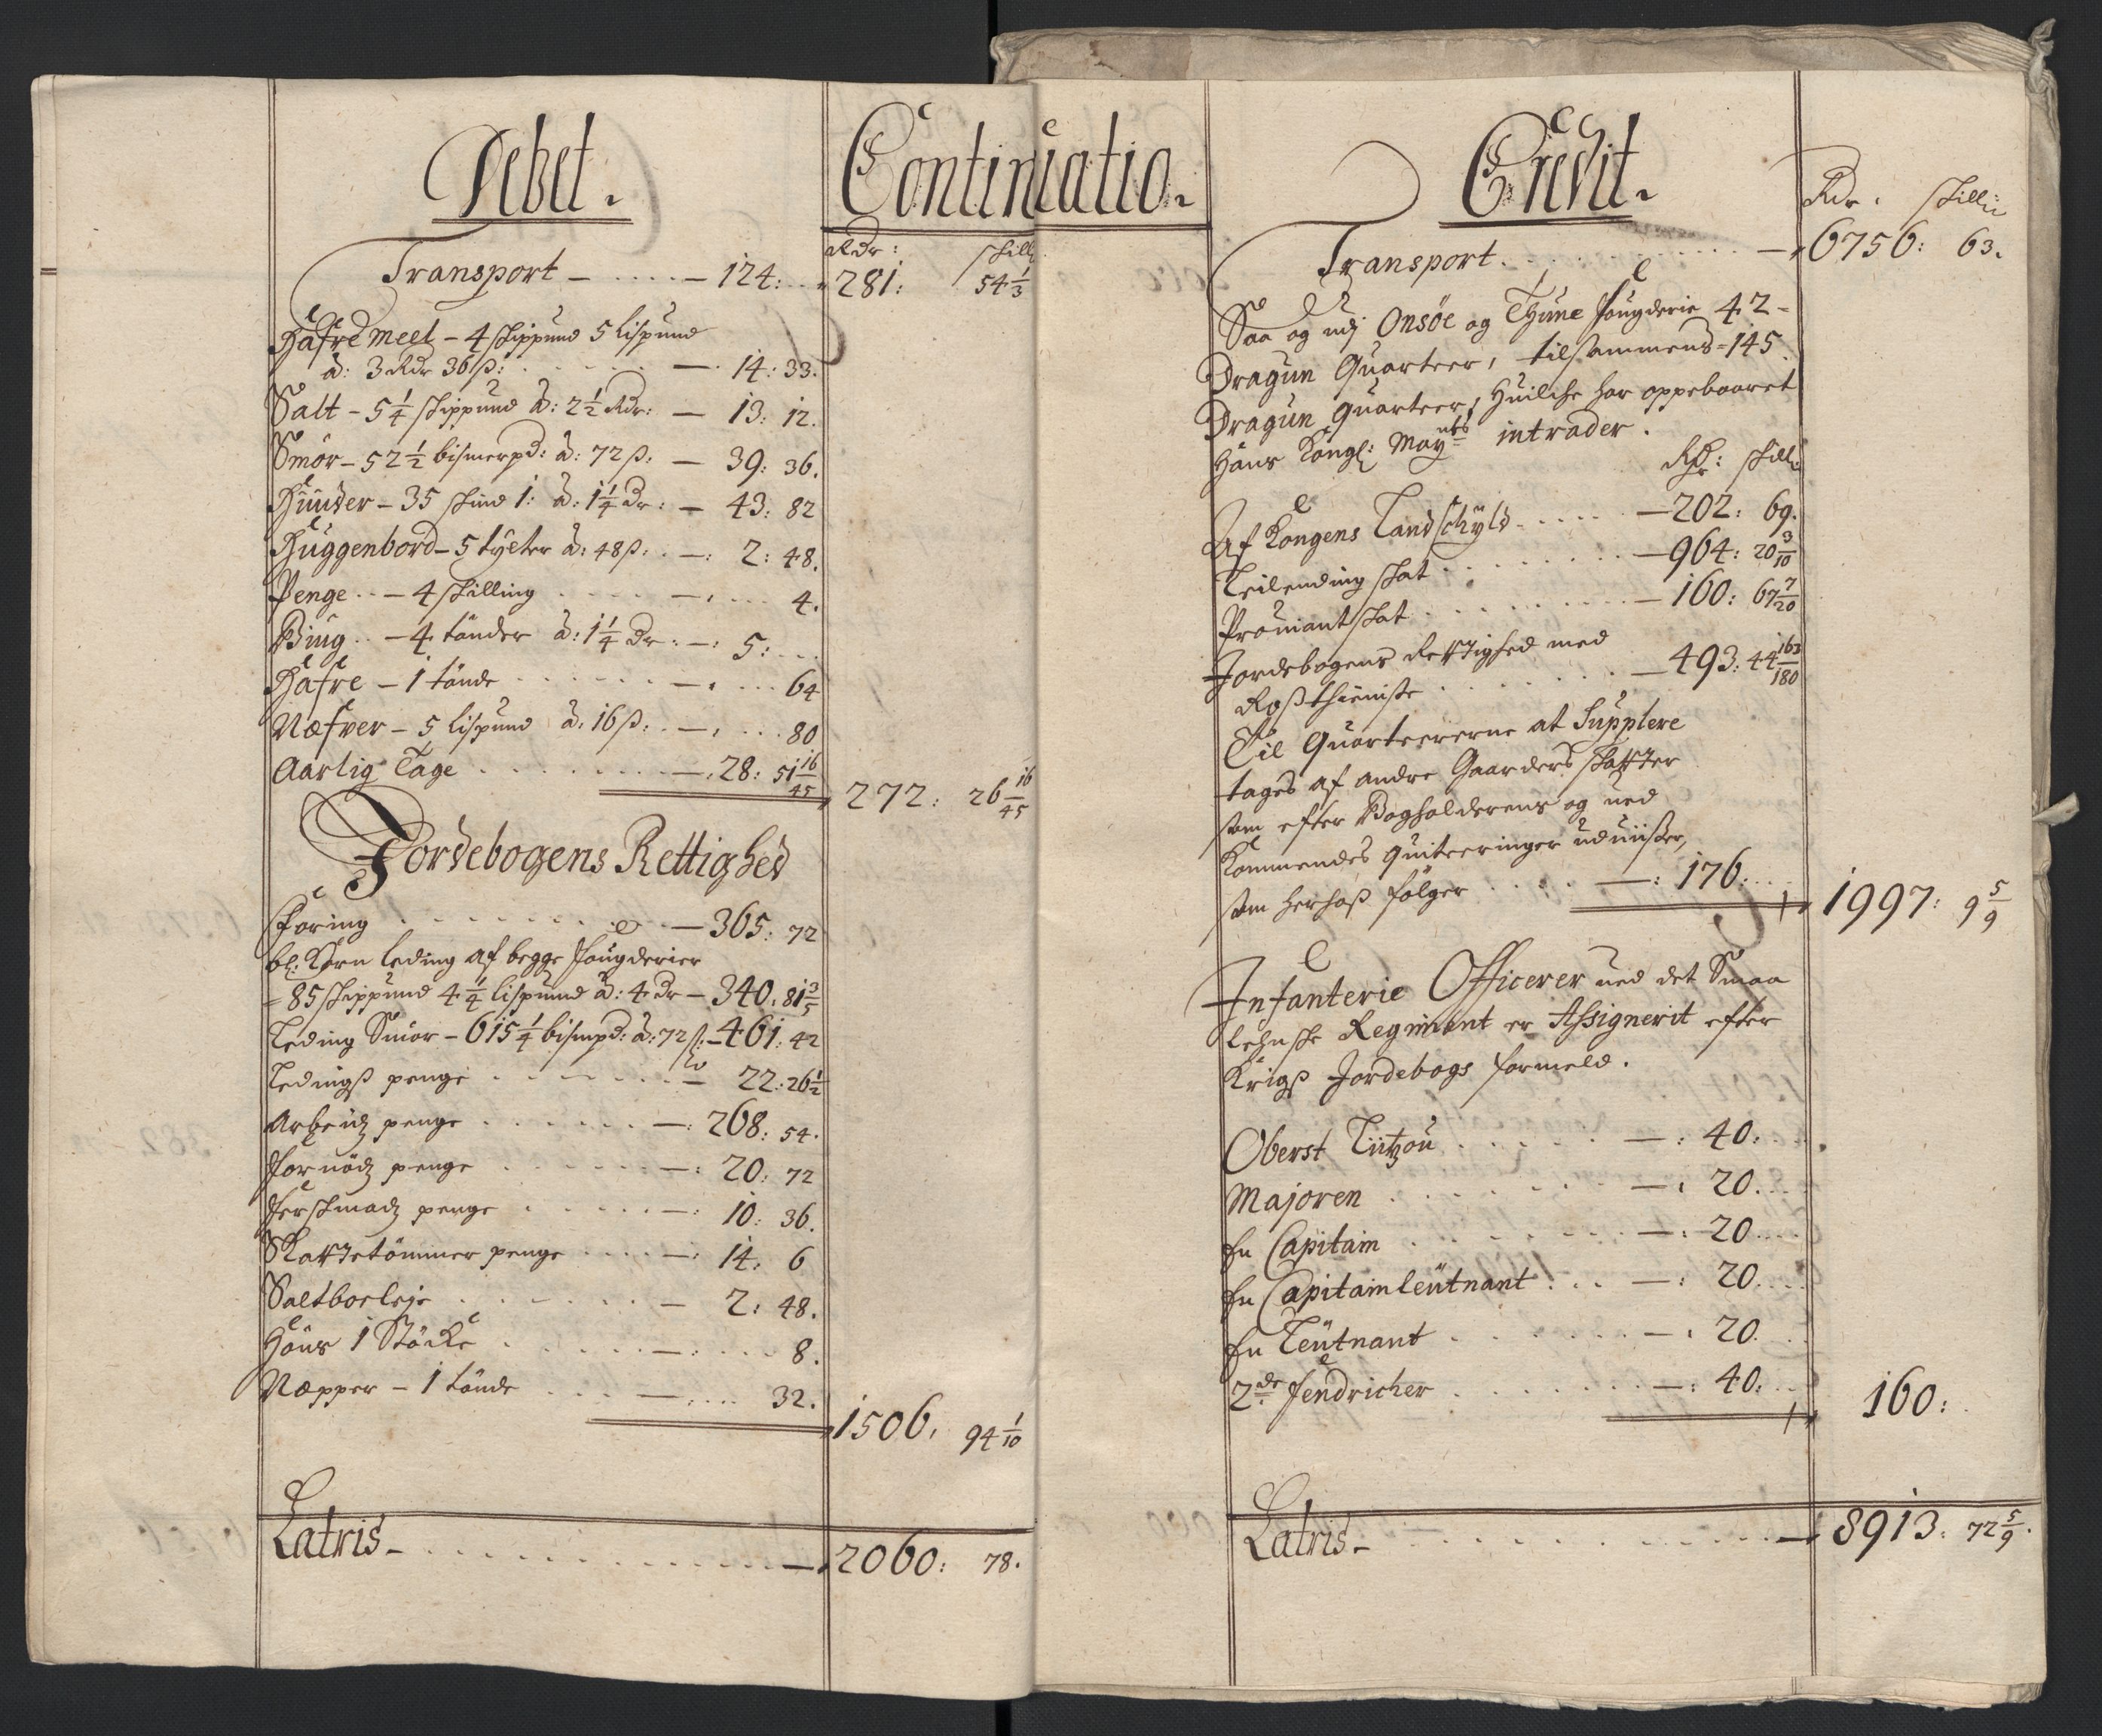 Debet.
Continuatio.
Rdr: skill:
Transport — 124: 281: 54 1/3
Hafre Meel – 4 skippund 5 Lispund
à: 3 Rdr 36 ß: — 14: 33.
Salt – 5 1/4 skippund à: 2 1/2 Rdr: — 13: 12.
Smör – 52 1/2 bismerpd: à: 72 ß: — 39: 36.
Huuder – 35 skind 1: à: 1 1/4 Dr: — 43: 82
Huggenbord – 5 tylter à: 48 ß: — 2: 48.
Penge — 4 skilling — 4.
Biug — 4 tönder à: 1 1/4 Dr: — 5:
Hafre – 1 tönde — 64
Næfver – 5 Lispund à: 16 ß: — 80
Aarlig Tage — 28: 51 16/45
272: 26 16/45
Jordebogens Rettighed
Foring — 365: 72
bl: Korn leding af begge fougderier
= 85 skippund 4 1/4 lispund à: 4 Dr — 340: 81 3/5
Leding Smör – 615 1/4 bismpd: à: 72 ß: — 461: 42
Ledingß penge — 22: 26 1/2
Arbeidz penge — 268: 54.
Fornödz penge — 20: 72
Ferskmadz penge — 10: 36.
Skattetömmer penge — 14: 6
Saltboeleje — 2: 48.
Höns 1 Stöcke — 8.
Næpper – 1 tönde — 32.
1506: 94 1/10
Latris — 2060: 78.
Credit.
Rdr: skilli:
Transport — 6756: 63.
Saa og udj Onsöe og Thune fougderie 42 =
Dragun Quarteer, tilsammens = 145.
Dragun quarteer, Huilche har oppebaaret
Hans Kongl: Mayts intrader.
Rdr: skill:
Af Kongens Landschyld — 202: 69.
Leilending skat — 964: 20 3/10
Proviant skat — 160: 67 7/20
Jordebogens Rettighed med
Roßthieniste — 493: 44 163/180
Til Quarteererne at Supplere
tages af andre Gaarders skatter
som efter Bogholderens og ved
Kommendes quiteeringer udviiser,
som herhoß fölger — 176:
1997: 9 5/9
Infanterie Officerer ved det Smaa
lehnske Regiment er Assignerit efter
Krigß Jordebogs formeld.
Oberst Lützou — 40:
Majoren — 20.
En Capitain — 20
En Capitainleutnant — 20.
En Leutnant — 20.
2de fendricher — 40.
160:
Latris — 8913: 72 5/9.